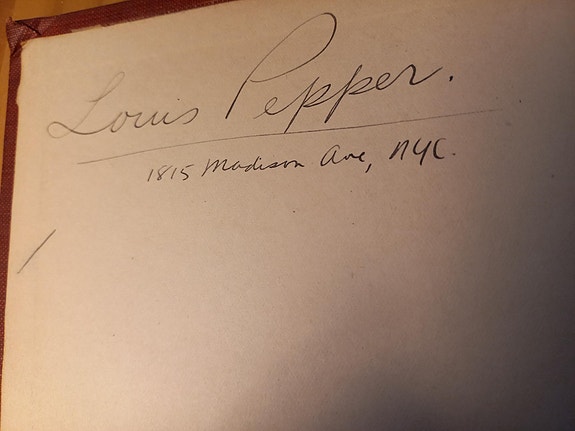 Louis Pepper.
1815 Madison Ave, NYC.